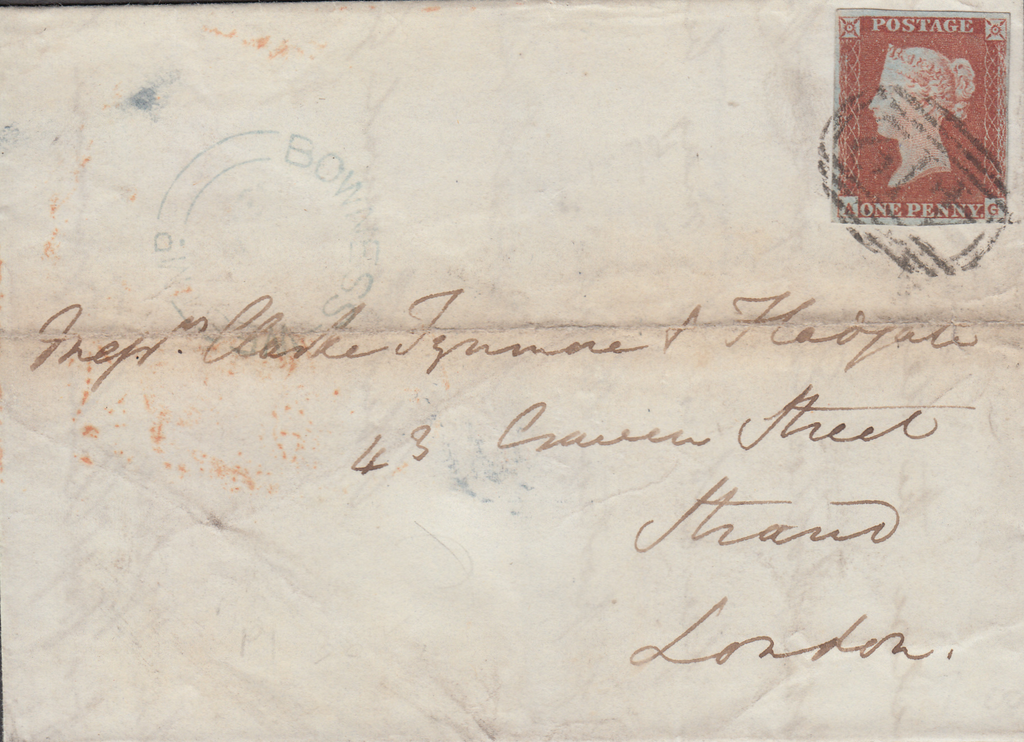 POSTAGE
A ONE PENNY. G
BOWNESS
Messrs. Clarke Fynmore & Fladgate
43 Craven Street
Strand
London.